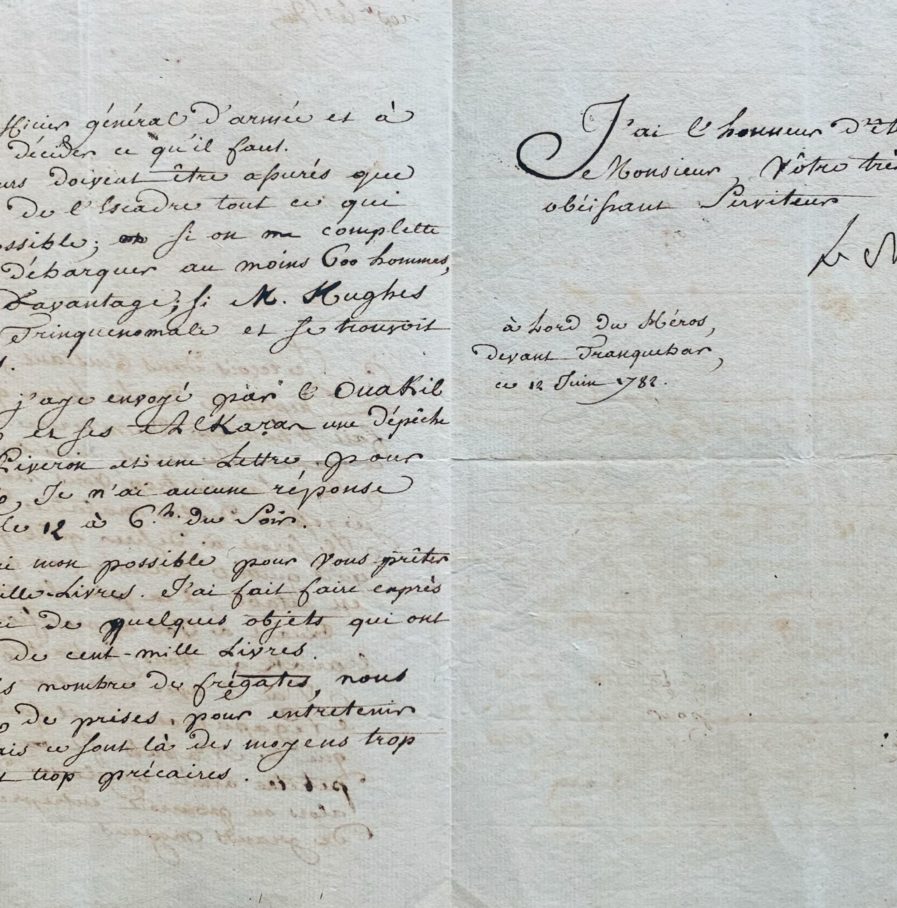 général d'armée et à
décider ce qu'il faut.
doivent être assurés que
de l'Escadre tout ce qui
si on me complette
débarquer au moins 600 hommes,
Davantage; si M. Hughes
Trinquemale et se trouvoit
j'aye envoyé par le Ouakil
et ses une dépêche
Piveron et une Lettre pour
Je n'ai aucune réponse
le 12 à 6h. du Soir.
mon possible pour vous prêter
Livres. J'ai fait faire exprès
de quelques objets qui ont
de cent-mille Livres.
nombre de frégates, nous
de prises, pour entretenir
ce sont là des moyens trop
trop précaires.
J'ai l'honneur d'êt
Monsieur, Vôtre trè
obéissant Serviteur
Le
à bord du Héros,
devant Tranquebar,
ce 12 Juin 1782.